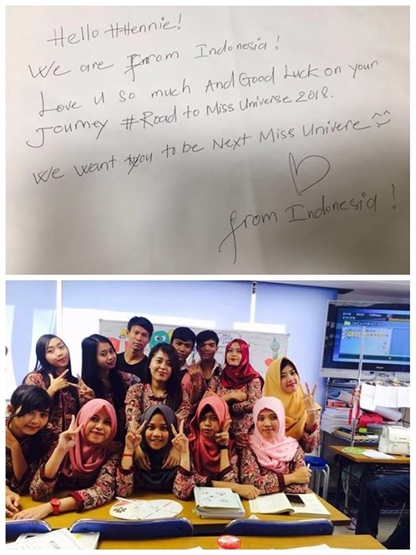 Hello #Hennie!
We are From Indonesia!
Love u so much And Good Luck on your
Journey #Road to Miss Universe 2018.
We want you to be Next Miss Univere
from Indonesia!